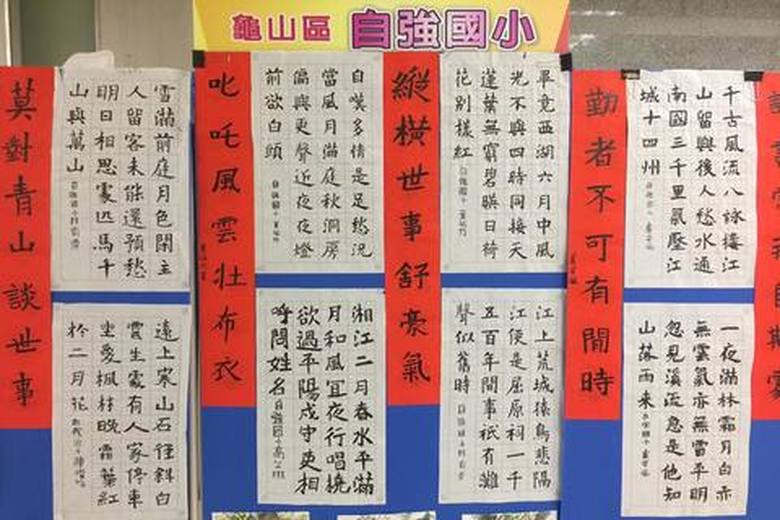 龜山區 自強國小
勤者不可有閒時
千古風流八詠樓江
山留與後人愁水通
南國三千里氣壓江
城十四州
一夜滿林霜月白亦
無雲氣亦無雪平明
忽見溪流急是他知
山落雨來
縱橫世事舒豪氣
畢竟西湖六月中風
光不與四時同接天
蓮葉無窮碧映日荷
花別樣紅
江上荒城猿鳥悲隔
江便是屈原祠一千
五百年間事祇有灘
聲似舊時
叱吒風雲壯布衣
自嘆多情是足愁況
當風月滿庭秋洞房
偏與更聲近夜夜燈
前欲白頭
湘江二月春水平滿
月和風宜夜行唱橈
欲過平陽戍守吏相
呼問姓名 自強國小
莫對青山談世事
雪滿前庭月色閒主
人留客未能還預愁
明日相思處匹馬千
山與萬山
遠上寒山石徑斜白
雲生處有人家停車
坐愛楓林晚霜葉紅
於二月花